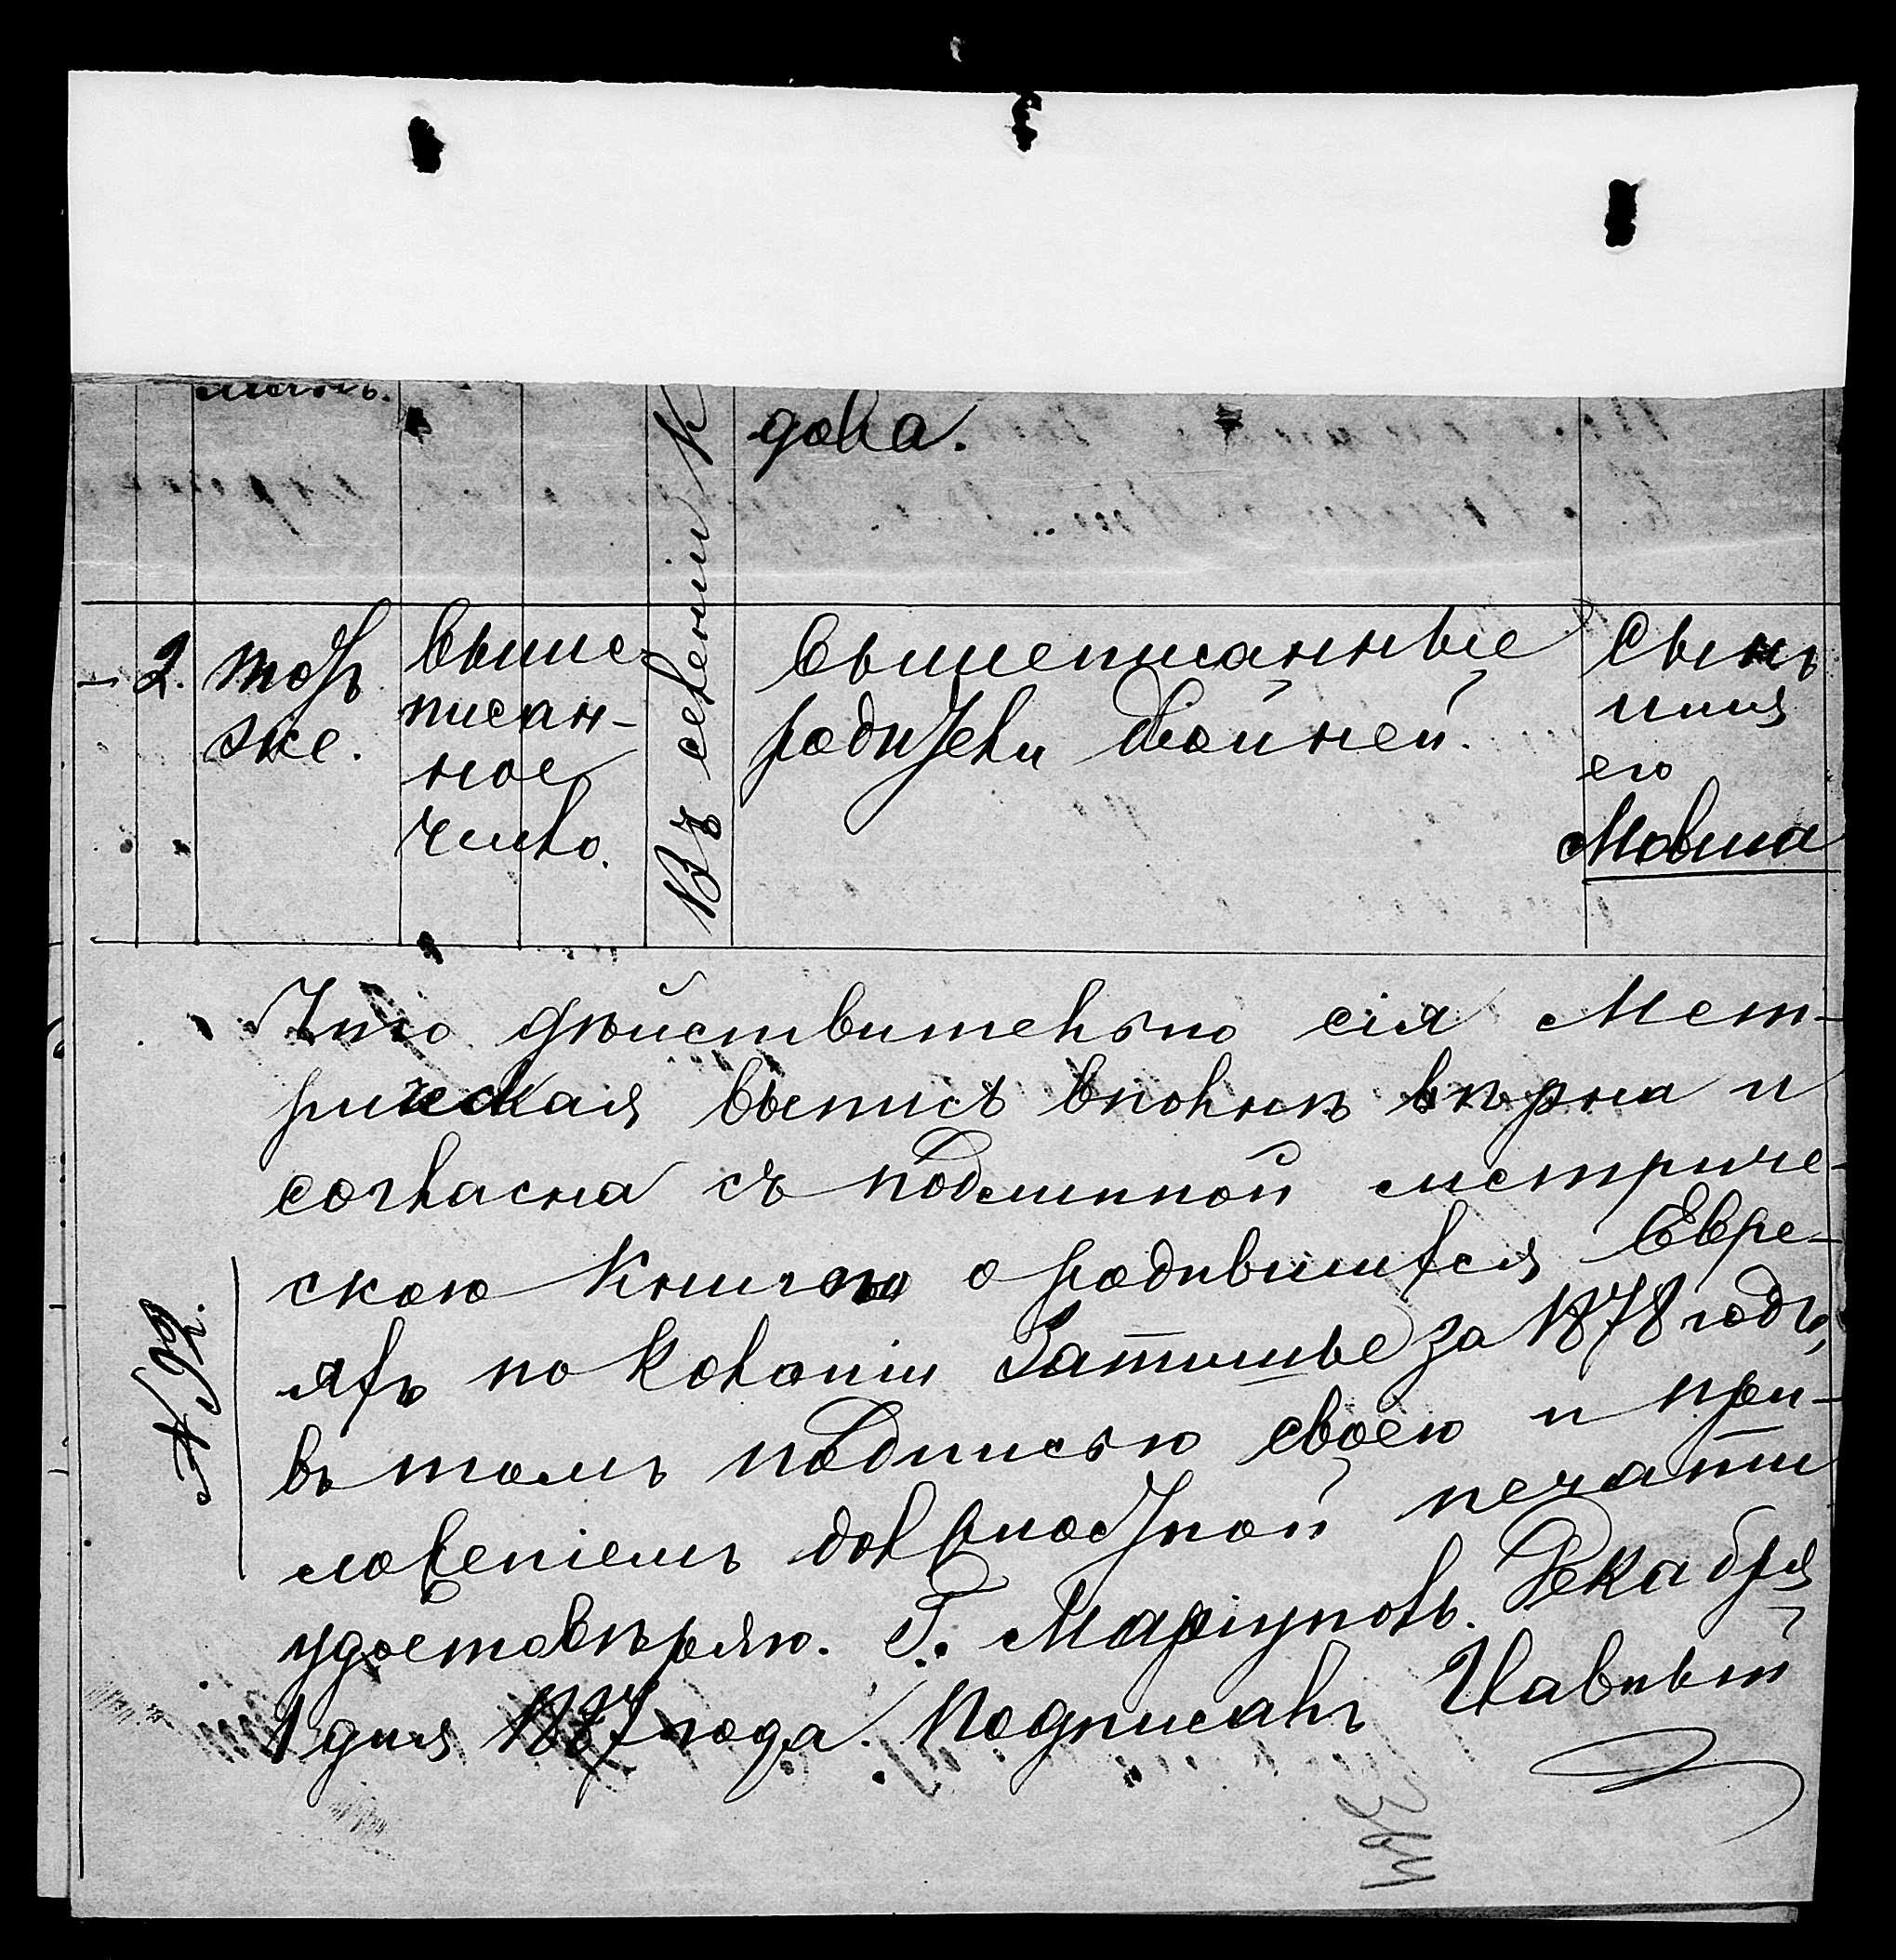 дова.
Въ селеніи К
– 2.
тотъ
же.
выше
писан-
ное
число.
вышеписанные
родители двойней.
Сынъ
имя
его
Мовша
Что дѣйствительно сія Мет-
рическая выпись вполнѣ вѣрна и
согласна съ подлинной метриче-
скою книгою о родившихся Евре-
яхъ по колоніи Затишье за 1878 годъ,
въ томъ подписью своею и при-
ложеніемъ должностной печати
удостовѣряю. Г. Маріуполь. Декабря
1 дня 1887 года. Подписалъ
№ 92.